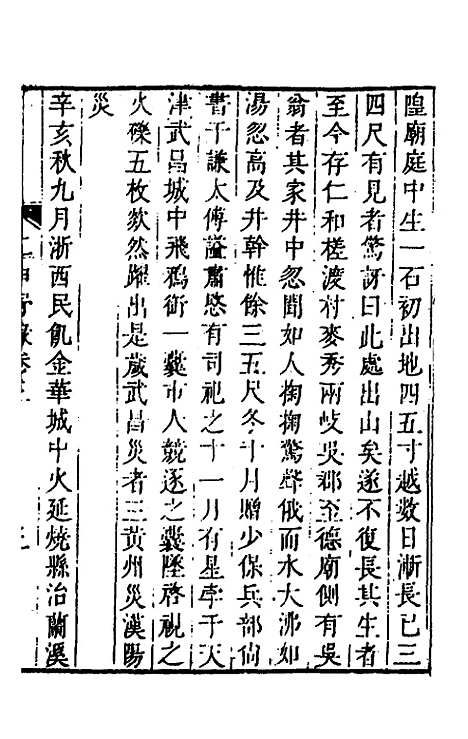 隍廟庭中生一石初出地四五寸越數日漸長已三
四尺有見者驚訝曰此處出山矣遂不復長其生者
至今存仁和槎渡村麥秀兩岐吳郡至德廟側有吳
翁者其家井中忽聞如人掏掬驚聲俄而水大沸如
湯忽高及井幹惟餘三五尺冬十月贈少保兵部尙
書于謙太傅謚肅愍有司祀之十一月有星孛于天
津武昌城中飛鴉銜一囊市人競逐之囊墜啓視之
火礫五枚欻然躍出是歲武昌災者三黃州災漢陽
災
辛亥秋九月浙西民飢金華城中火延燒縣治蘭溪
二申野錄卷三